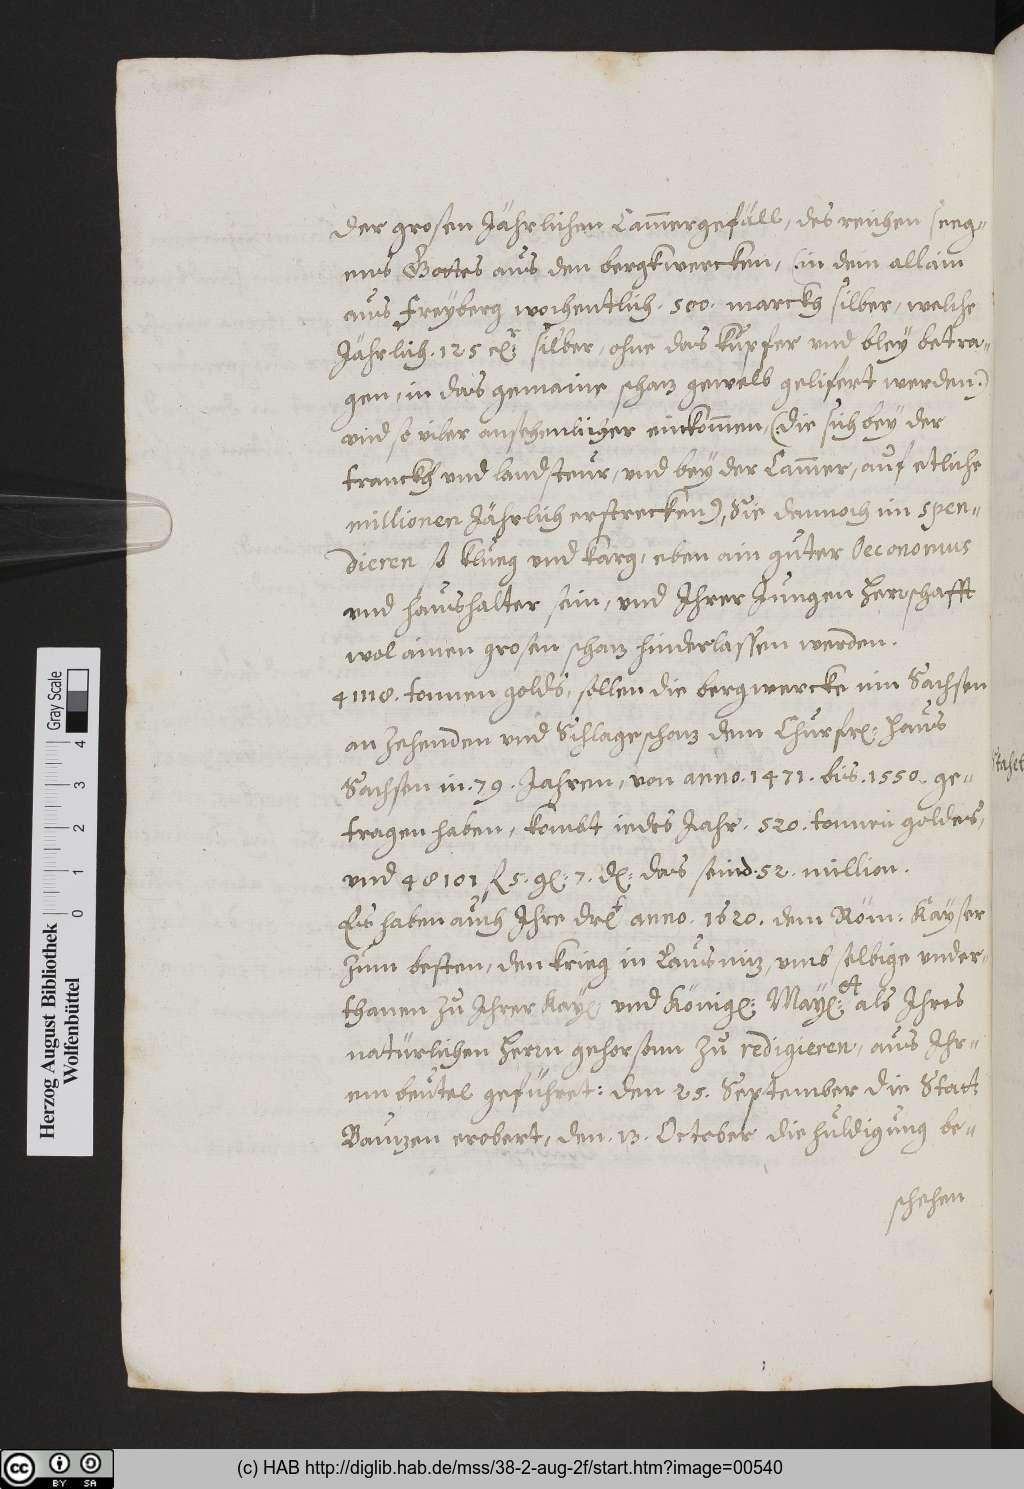 der grosen Jährlichen Cam̄ergefäll, des reichen seeg-
ens Gottes aus den bergkwercken, (:in dem allain
aus Freyberg wochentlich. 500. marckh silber, welche
Jährlich. 125 silber, ohne das kupfer vnd bley betra-
gen, in das gemaine schaz gewelb gelifert werden:)
vnd so viler ansehenlicher einkom̄en, (:die sich bey der
tranckh vnd landsteur, vnd bey der Cam̄er, auf etliche
millionen Jährlich erstrecken:), Sie dennoch im spen-
dieren so klueg vnd karg, eben ain guter Oeconomus
vnd haushalter sein, vnd Ihrer Jungen herrschafft
wol ainen grosen schaz hinderlassen werden.
41118. tonnen golds, sollen die bergwercke im Sachsen
an zehenden vnd Schlageschaz dem Churfrl: Haus
Sachsen in. 79. Jahren, von anno. 1471. bis. 1550. ge-
tragen haben, kombt iedes Jahr. 520. tonnen goldes,
vnd 48101 fl 5. gl: 7. dl: das seind. 52. million.
Es haben auch Ihre drlt anno. 1620. dem Röm: Kayser
zum besten, den krieg in Lausniz, vmb selbige vnder-
thanen zu Ihrer Kayl: vnd Königl: Mayl:et als Ihres
natürlichen Herrn gehorsam zu redigieren, aus Ihr-
em beutel geführet: den 25. September die Statt
Bauzen erobert, den. 13. October die huldigung be-
schehen
Herzog August Bibliothek
Wolfenbüttel
0 1 2 3 4
Gray Scale
BY SA
(c) HAB http://diglib.hab.de/mss/38-2-aug-2f/start.htm?image=00540